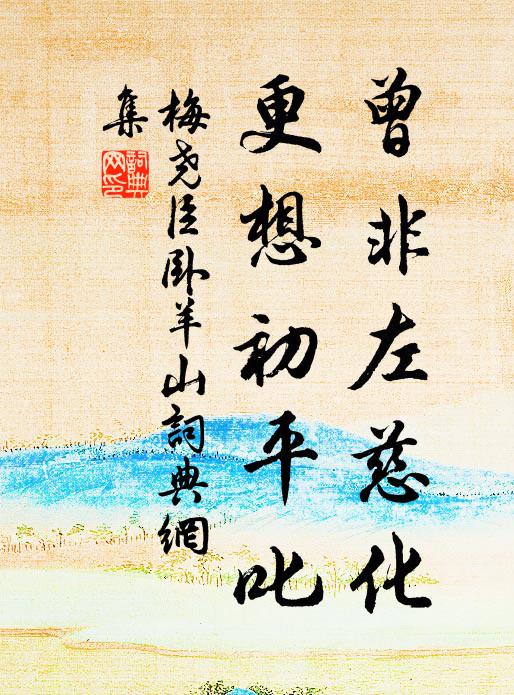 曾非左慈化
更想初平叱
梅尧臣卧羊山詞典網
集
詞典
网印